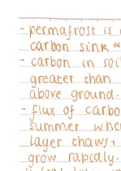 - permafrost is a
carbon sink
- carbon in soi
greater than
above ground.
- flux of carbo
summer whe
layer thaws
grow rapidly.